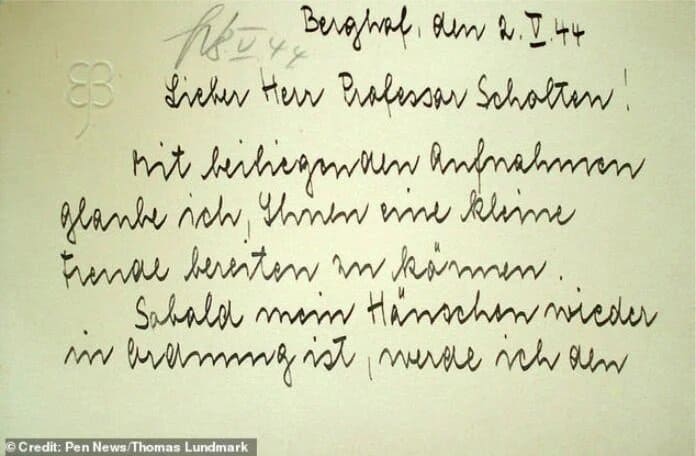 Berghof, den 2.V.44
V. 44
Lieber Herr Professor Scholten!
Mit beiliegenden Aufnahmen
glaube ich, Ihnen eine kleine
Freude bereiten zu können.
Sobald mein Häuschen wieder
in Ordnung ist, werde ich den
© Credit: Pen News/Thomas Lundmark